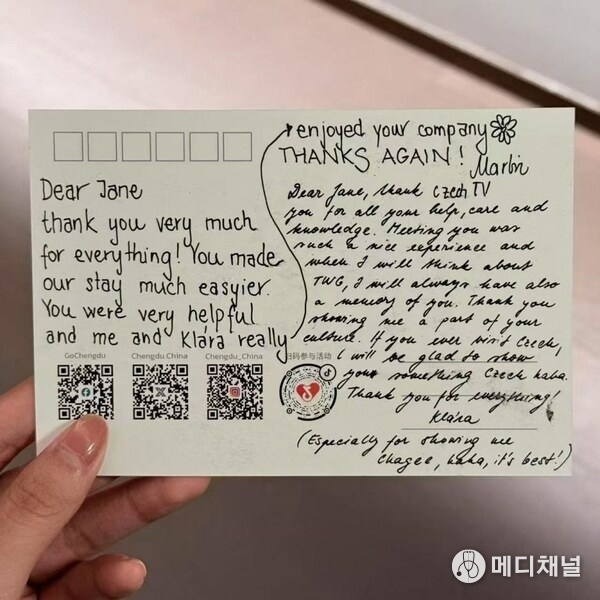 Dear Jane
thank you very much
for everything! You made
our stay much easyier.
You were very helpful
and me and Klára really
enjoyed your company
THANKS AGAIN!
Martin
Czech TV
Dear Jane, thank
you for all your help, care and
knowledge. Meeting you was
such a nice experience and
when I will think about
TWG, I will always have also
a memory of you. Thank you
showing me a part of your
culture. If you ever visit Czech,
I will be glad to show
you something Czech haha.
Thank you for everything!
Klára
(Especially for showing me
Chagee, haha, it's best!)
GoChengdu
Chengdu_China
Chengdu_China
扫码参与活动
메디채널